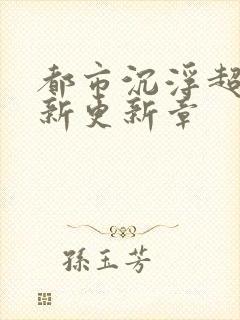 都市沉浮超
新更新章
孫玉芳